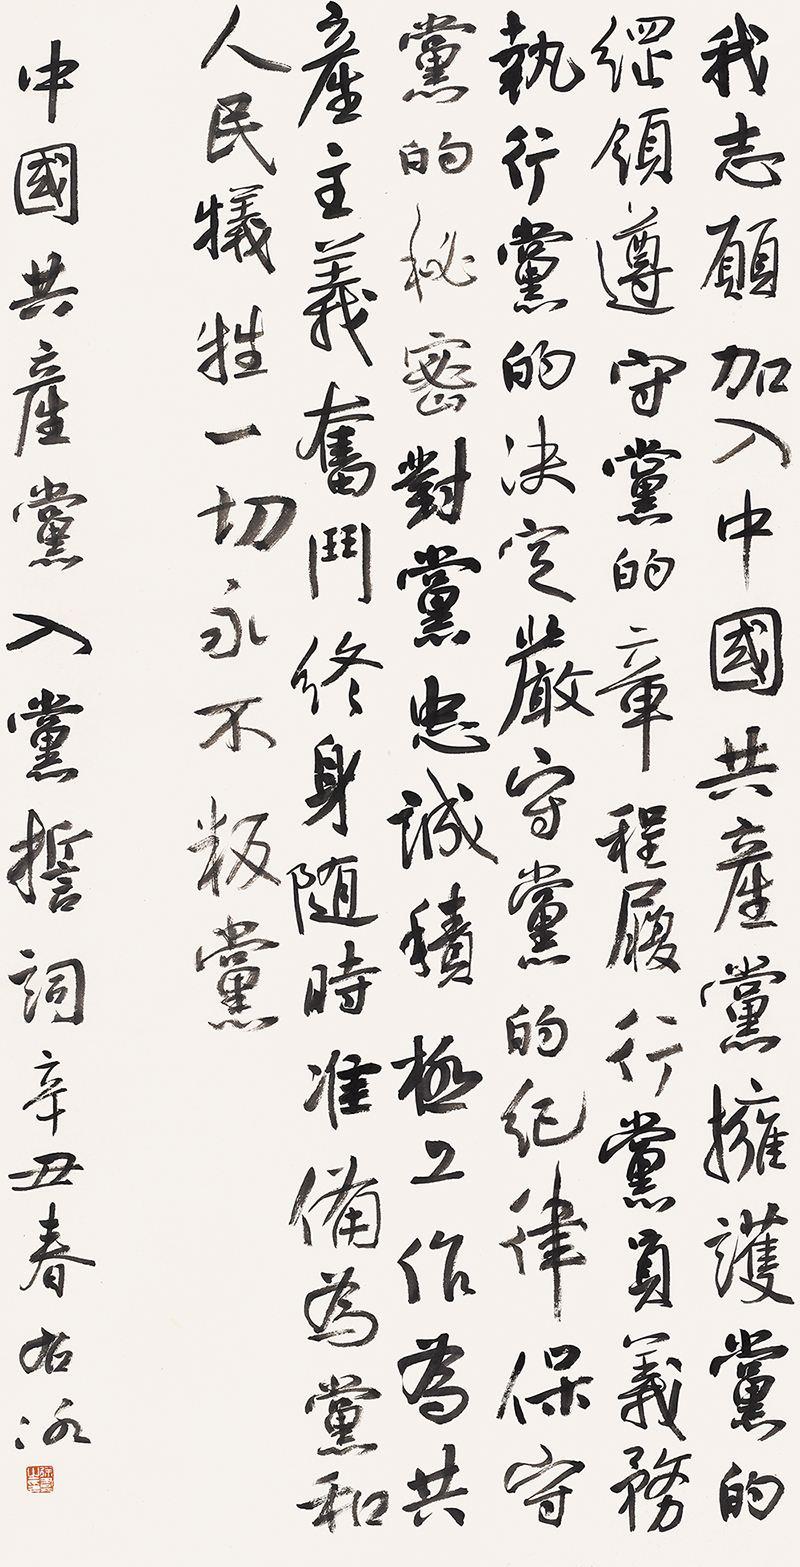 我志願加入中國共産黨擁護黨的
綱領遵守黨的章程履行黨員義務
執行黨的決定嚴守黨的紀律保守
黨的秘密對黨忠誠積極工作為共
産主義奮鬥終身随時准備為黨和
人民犧牲一切永不叛黨
中國共産黨入黨誓詞辛丑春